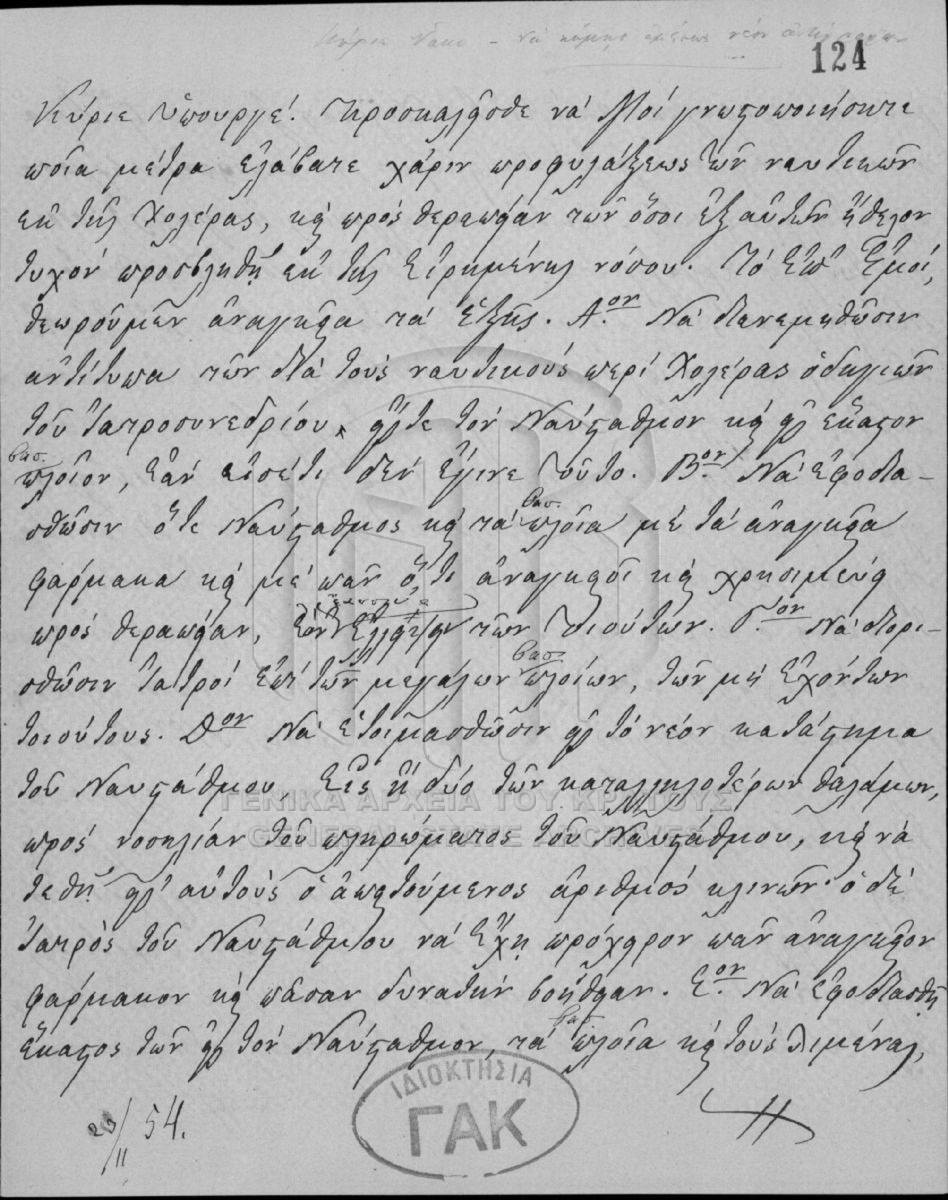 Κύριε Νάκο – νὰ κάμῃς ἀμέσως νέον ἀντίγραφον
124
Κύριε Ὑπουργέ! Προσκαλεῖσθε νά Μοί γνωστοποιήσητε
ποῖα μέτρα ἐλάβατε χάριν προφυλάξεως τῶν ναυτικῶν
ἐκ τῆς Χολέρας, καί πρός θεραπείαν τῶν ὅσοι ἐξ αὐτῶν ἤθελον
τυχόν προσβληθῆ ἐκ τῆς εἰρημένης νόσου. Τό ἐπ' Ἐμοί,
θεωροῦμεν ἀναγκαῖα τά ἑξῆς. Α.ον Νά διανεμηθῶσιν
ἀντίτυπα τῶν διά τούς ναυτικούς περί Χολέρας ὁδηγιῶν
τοῦ Ἰατροσυνεδρίου, εἴς τε τόν Ναύσταθμον καί εἰς ἕκαστον
βασ.
πλοῖον, ἐάν εἰσέτι δέν ἔγινε τοῦτο. Β.ον Νά ἐφοδια-
βασ.
σθῶσιν ὅ τε Ναύσταθμος καί τά πλοῖα μέ τά ἀναγκαῖα
φάρμακα καί μέ πᾶν ὅ,τι ἀναγκαιοῖ καί χρησιμεύει
πρός θεραπείαν, ἐάν τῶν τοιούτων. Γ.ον Νά διορι-
βασ.
σθῶσιν ἰατροί ἐπί τῶν μεγάλων πλοίων, τῶν μή ἐχόντων
τοιούτους. Δον Νά ἑτοιμασθῶσιν εἰς τό νέον κατάστημα
τοῦ Ναυστάθμου, εἷς ἤ δύο τῶν καταλληλοτέρων θαλάμων,
πρός νοσηλείαν τοῦ πληρώματος τοῦ Ναυστάθμου, καί νά
τεθῆ εἰς αὐτούς ὁ ἀπαιτούμενος ἀριθμός κλινῶν· ὁ δέ
ἰατρός τοῦ Ναυστάθμου νά ἔχῃ πρόχειρον πᾶν ἀναγκαῖον
φάρμακον καί πᾶσαν δυνατήν βοήθειαν. Ε.ον Νά ἐφοδιασθῆ
βασ.
ἕκαστος τῶν εἰς τόν Ναύσταθμον, τά πλοῖα καί τούς λιμένας,
23/11 54.
ΓΕΝΙΚΑ ΑΡΧΕΙΑ ΤΟΥ ΚΡΑΤΟΥΣ
GENERAL STATE ARCHIVES
ΙΔΙΟΚΤΗΣΙΑ
ΓΑΚ